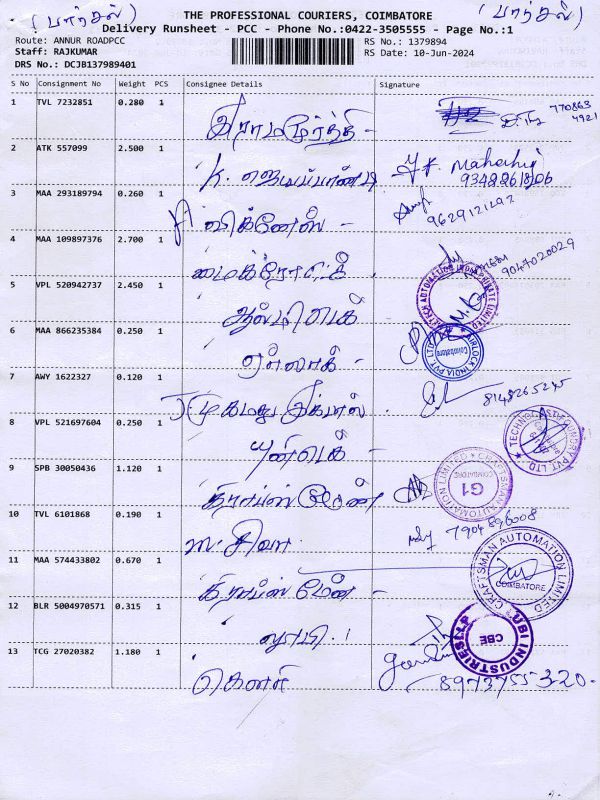 (பார்சல்)
(பார்சல்)
THE PROFESSIONAL COURIERS, COIMBATORE
Delivery Runsheet - PCC - Phone No.:0422-3505555 - Page No.:1
Route: ANNUR ROADPCC
RS No.: 1379894
Staff: RAJKUMAR
RS Date: 10-Jun-2024
DRS No.: DCJB137989401
S No Consignment No Weight PCS Consignee Details Signature
1 TVL 7232851 0.280 1 இராமமூர்த்தி -
770863
4921
2 ATK 557099 2.500 1 K. ஜெயப்பாண்டி
9342261806
3 MAA 293189794 0.260 1 A விக்னேஸ் -
9629121292
4 MAA 109897376 2.700 1
9047020029
5 VPL 520942737 2.450 1
6 MAA 866235384 0.250 1 ஏர்லாக் -
AIRLOCK INDIA PVT LTD
Coimbatore
7 AWY 1622327 0.120 1 முகமது இக்பால்
8148265245
8 VPL 521697604 0.250 1
9 SPB 30050436 1.120 1
CRAFTSMAN AUTOMATION LIMITED
COIMBATORE
G1
10 TVL 6101868 0.190 1 M. சிவா
7904896008
11 MAA 574433802 0.670 1 கிராப்ஸ் மேன் -
CRAFTSMAN AUTOMATION LIMITED
COIMBATORE
12 BLR 5004970571 0.315 1
UBI INDUSTRIES LLP
CBE
13 TCG 27020382 1.180 1 கௌரி
8973755320-